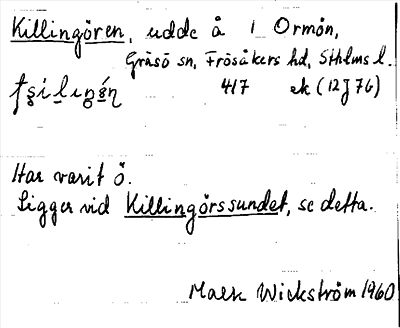 Killingören, udde å 1 Ormön,
Gräsö sn, Frösåkers hd, Sthlms l.
417 ek (12J76)
Har varit ö.
Ligger vid Killingörssundet, se detta.
Wickström 1960